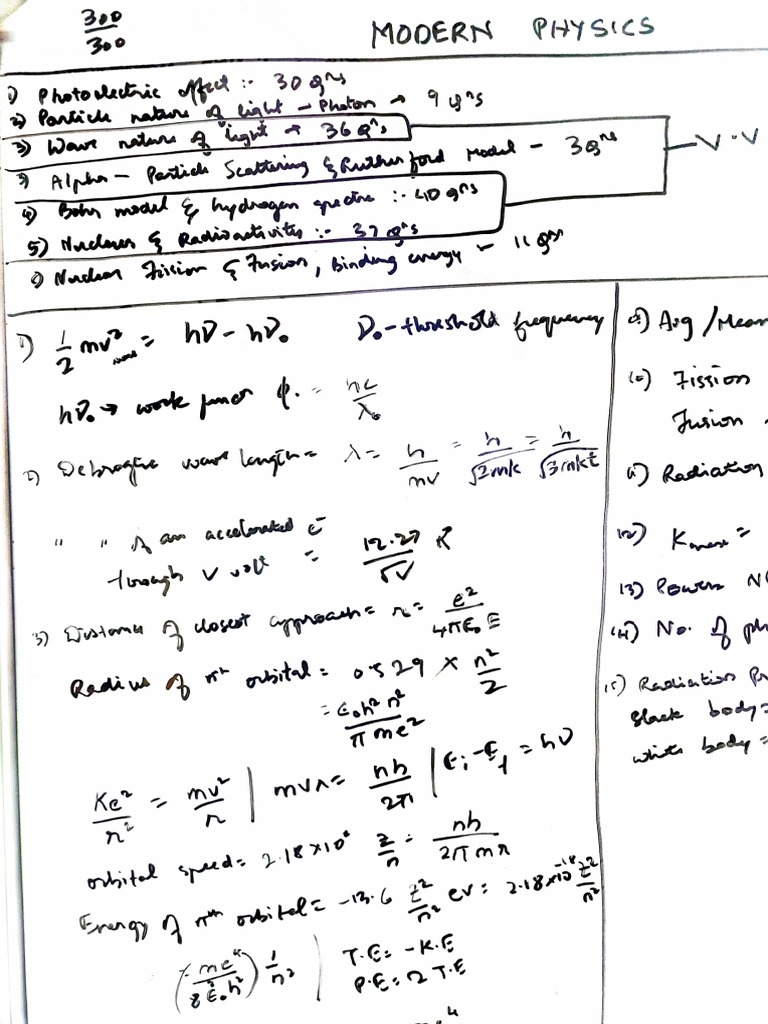 300/300
MODERN PHYSICS
1) Photoelectric effect :- 30 Qns
2) Particle nature of light - Photon → 9 Qns
3) Wave nature of "light" → 36 Qns
3) Alpha - Particle Scattering & Rutherford Model - 3 Qns
V.V
4) Bohr model & hydrogen spectra :- 40 Qns
5) Nucleus & Radioactivites :- 37 Qns
6) Nuclear Fission & Fusion, Binding energy - 11 Qns
1) 1/2 mv²max = hν - hν₀ ν₀ - threshold frequency
hν₀ → work φ₀ = hc/λ₀
2) wave length = λ = h/mv = h/√2mk = h/√3mkt
" " of an accelerated e⁻
through V volt = 12.27/√V Å
3) Distance of closest approach = r₀ = e²/4πε₀E
Radius of nth orbital = 0.529 × n²/2
= ε₀h²n²/πme²
Ke²/r² = mv²/r | mvr = nh/2π | Ei - Ef = hν
orbital speed = 2.18×10⁶ z/n = nh/2πmr
Energy of nth orbital = -13.6 z²/n² ev = 2.18×10⁻¹⁸ z²/n²
(-me⁴/8ε₀²h²) 1/n² | T.E = -K.E
P.E = 2 T.E
) Avg / Mean
10) Fission
Fusion
11) Radiation
12) Kmax =
13) Power
14) No. of ph
15) Radiation Pr
black body =
white body =